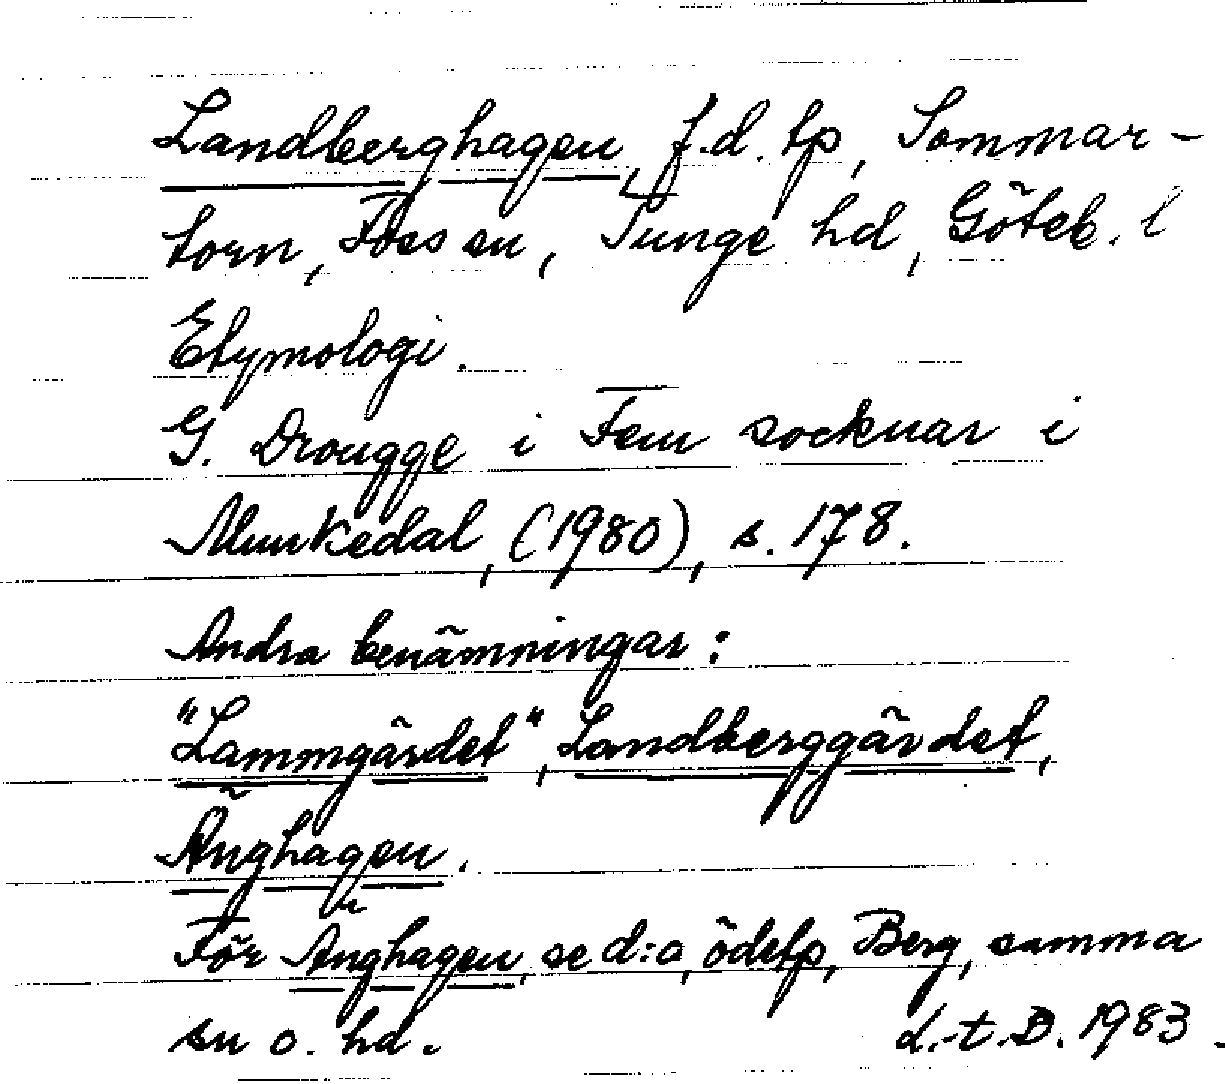 Landberghagen, f.d. tp, Sommar-
torn, Foss sn, Tunge hd, Göteb. l
Etymologi.
G. Drougge i Fem socknar i
Munkedal, (1980), s. 178.
Andra benämningar:
"Lammgärdet", Landberggärdet,
Änghagen.
För Änghagen, se d:o, ödetp, Berg, samma
sn o. hd.
L.-t.B. 1983.